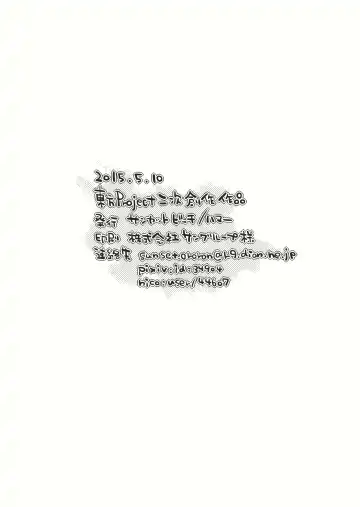 2015.5.10
東方Project二次創作作品
発行 サンセットビッチ/ハマー
印刷 株式会社サングループ様
連絡先
pixiv:id:34904
nico:user/44607